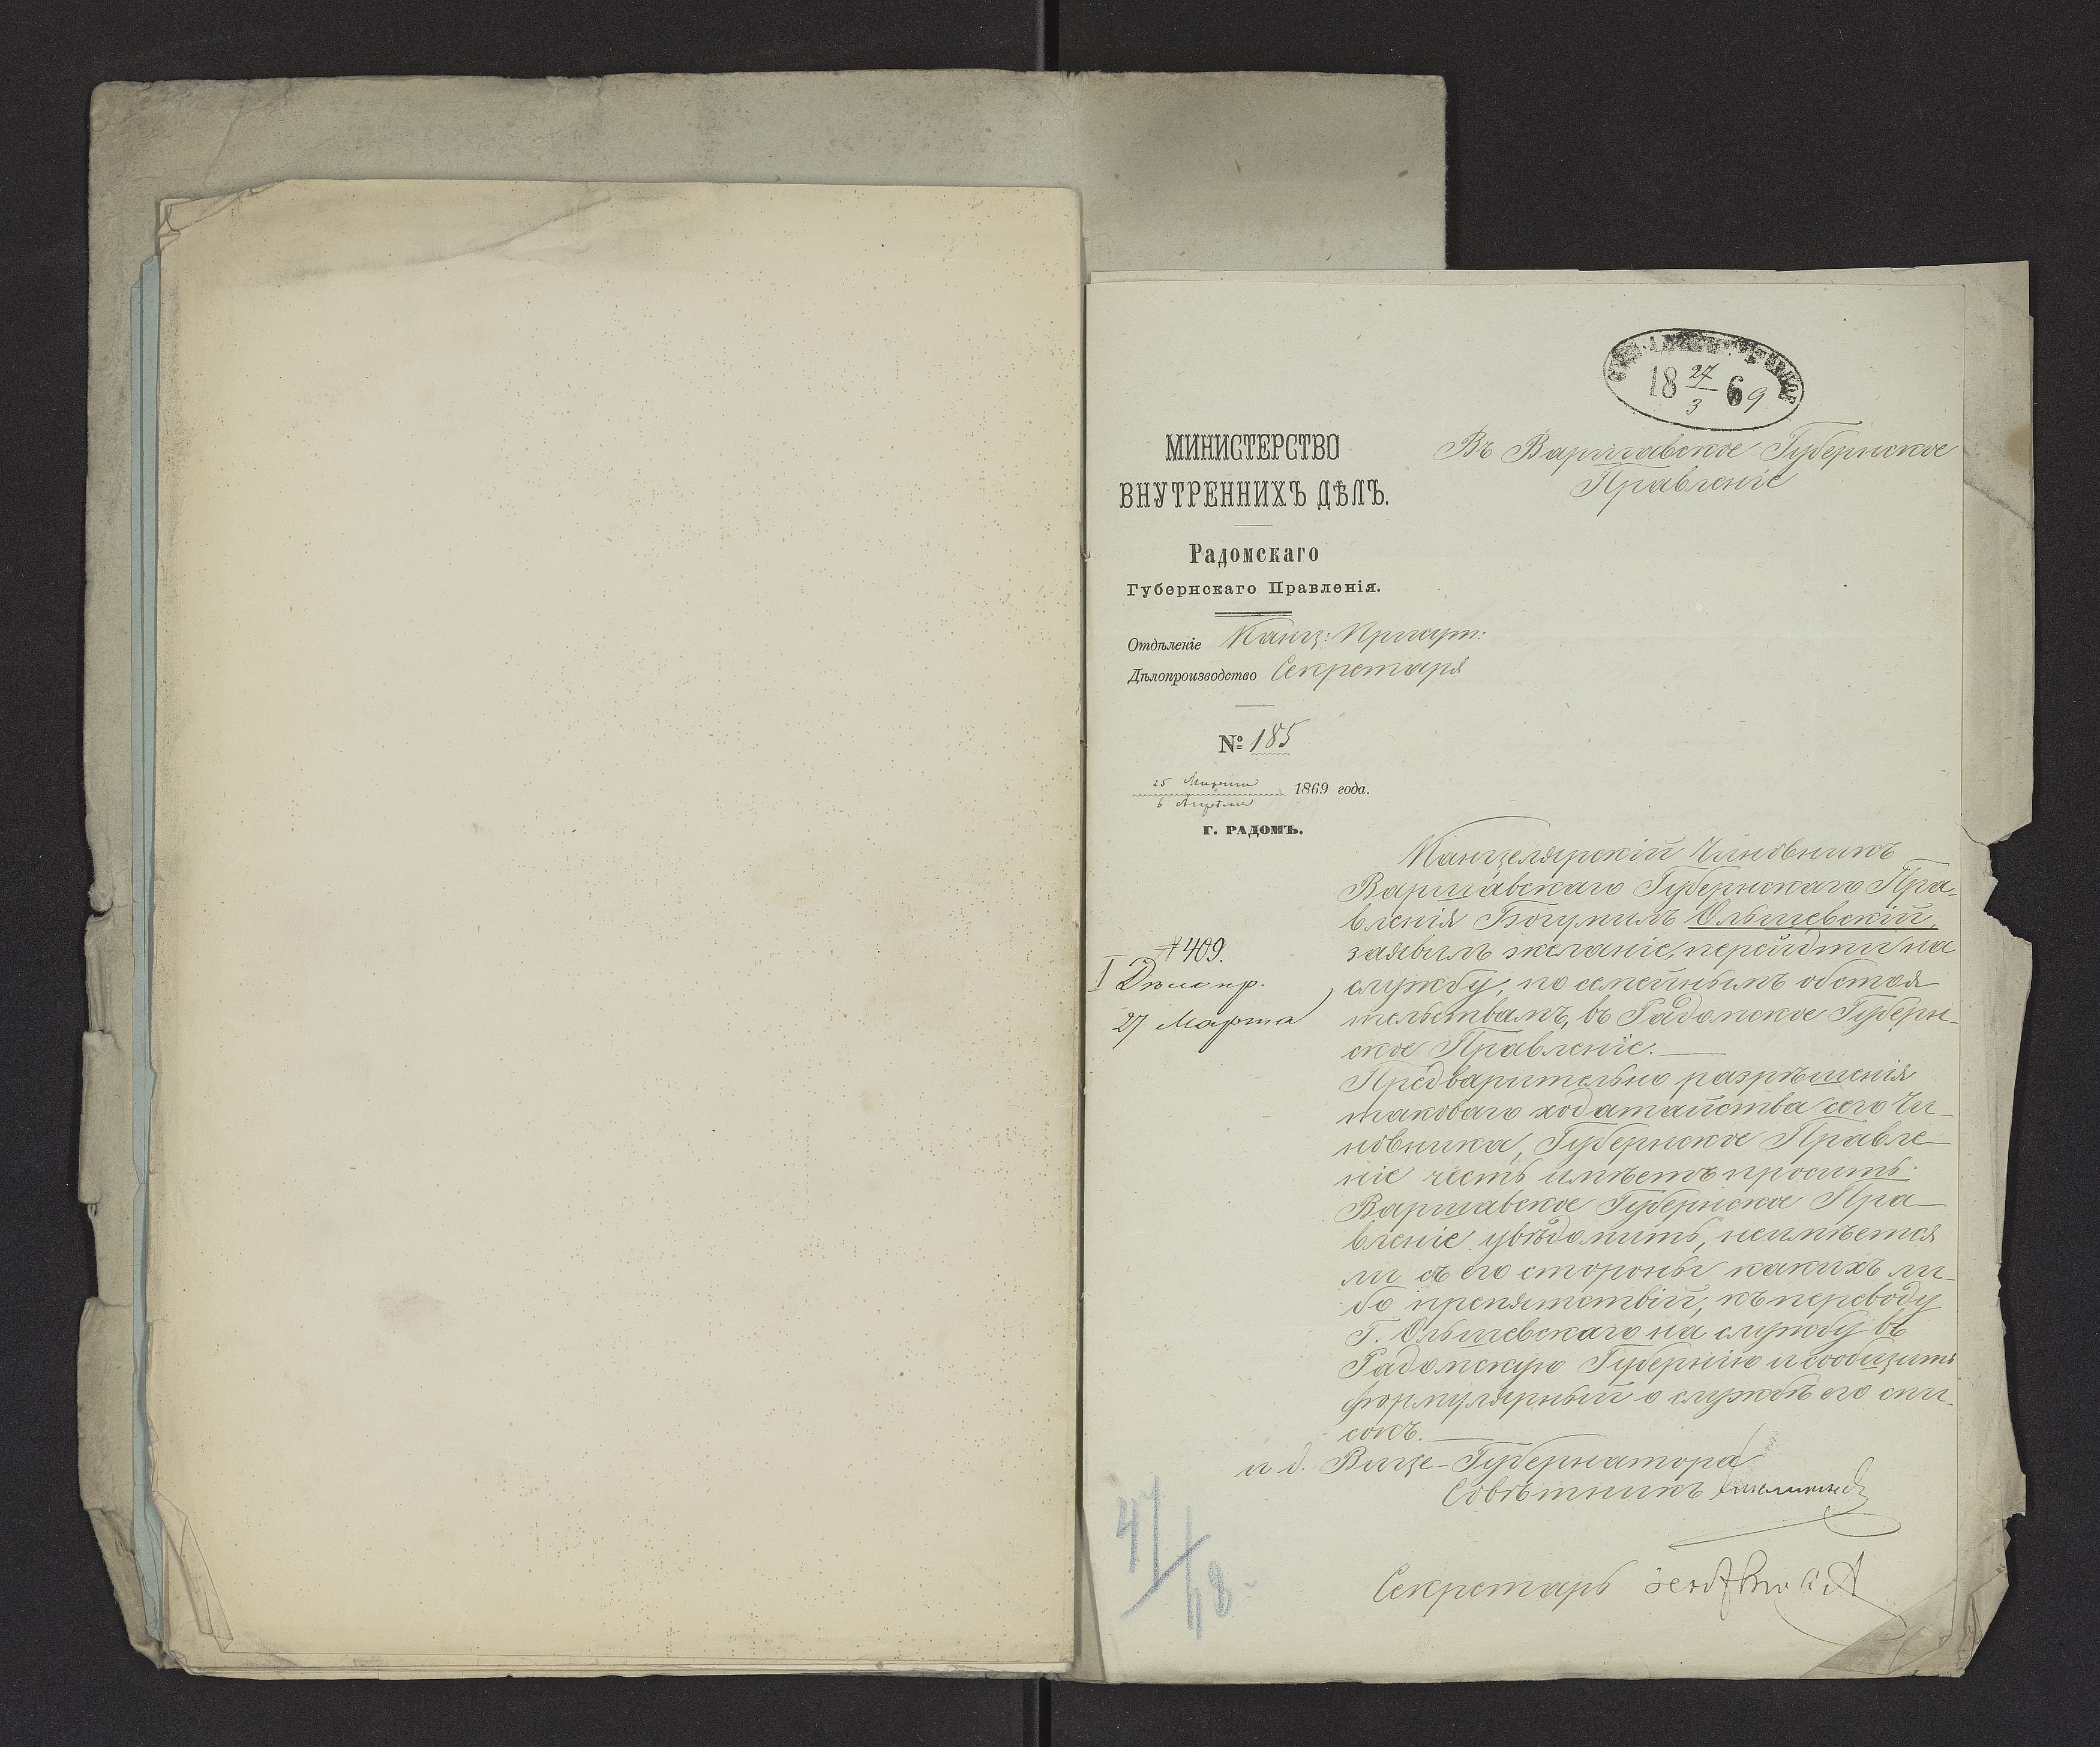 18 27/3 69
МИНИСТЕРСТВО
ВНУТРЕННИХЪ ДѢЛЪ.
Радомскаго
Губернскаго Правленія.
Отдѣленіе Канц: Присут:
Дѣлопроизводство Секретаря
№ 185
25 Марта
6 Апрѣля
1869 года.
Г. РАДОМЪ.
Въ Варшавское Губернское
Правленіе
#409.
I Дѣлопр.
27 Марта
Канцелярскій Чиновникъ
Варшавскаго Губернскаго Пра-
вленія Богумилъ Ольшевскій,
заявилъ желаніе, перейдти на
службу, по семейнымъ обстоя
тельствамъ, въ Радомское Губерн-
ское Правленіе.
Предварительно разрѣшенія
таковаго ходатайства сего Чи-
новника, Губернское Правле-
ніе честь имѣетъ просить
Варшавское Губернское Пра-
вленіе увѣдомить, неимѣется
ли съ его стороны какихъ ли-
бо препятствій, къ переводу
Г. Ольшевскаго на службу въ
Радомскую Губернію и сообщить
формулярный о службѣ его спи-
сокъ.
и д. Вице-Губернатора
Совѣтникъ
Секретарь
47/48